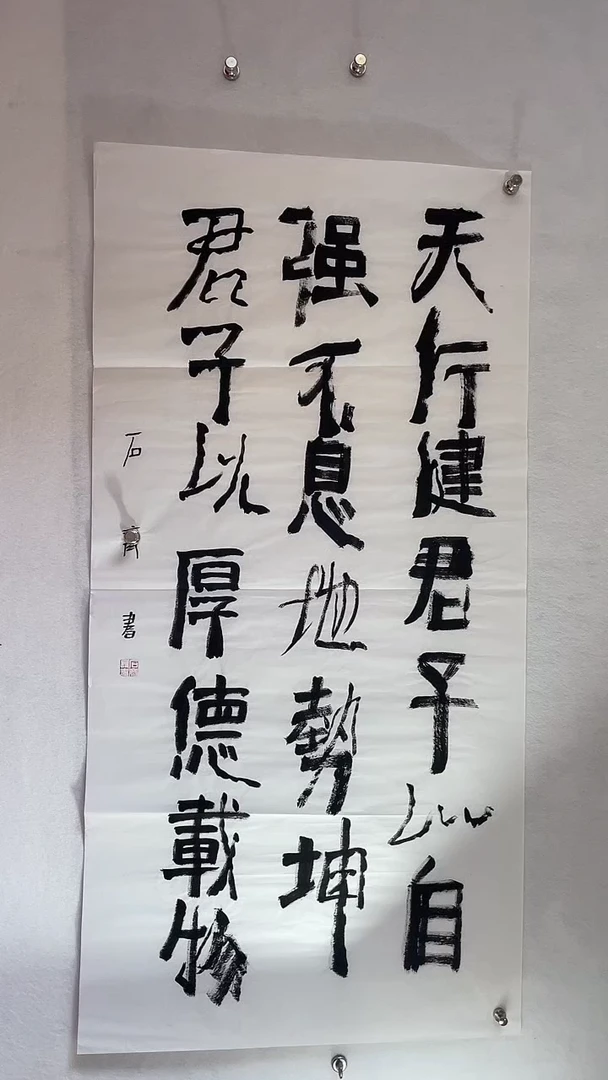 天行健君子以自
强不息地势坤
君子以厚德載物
石齊書